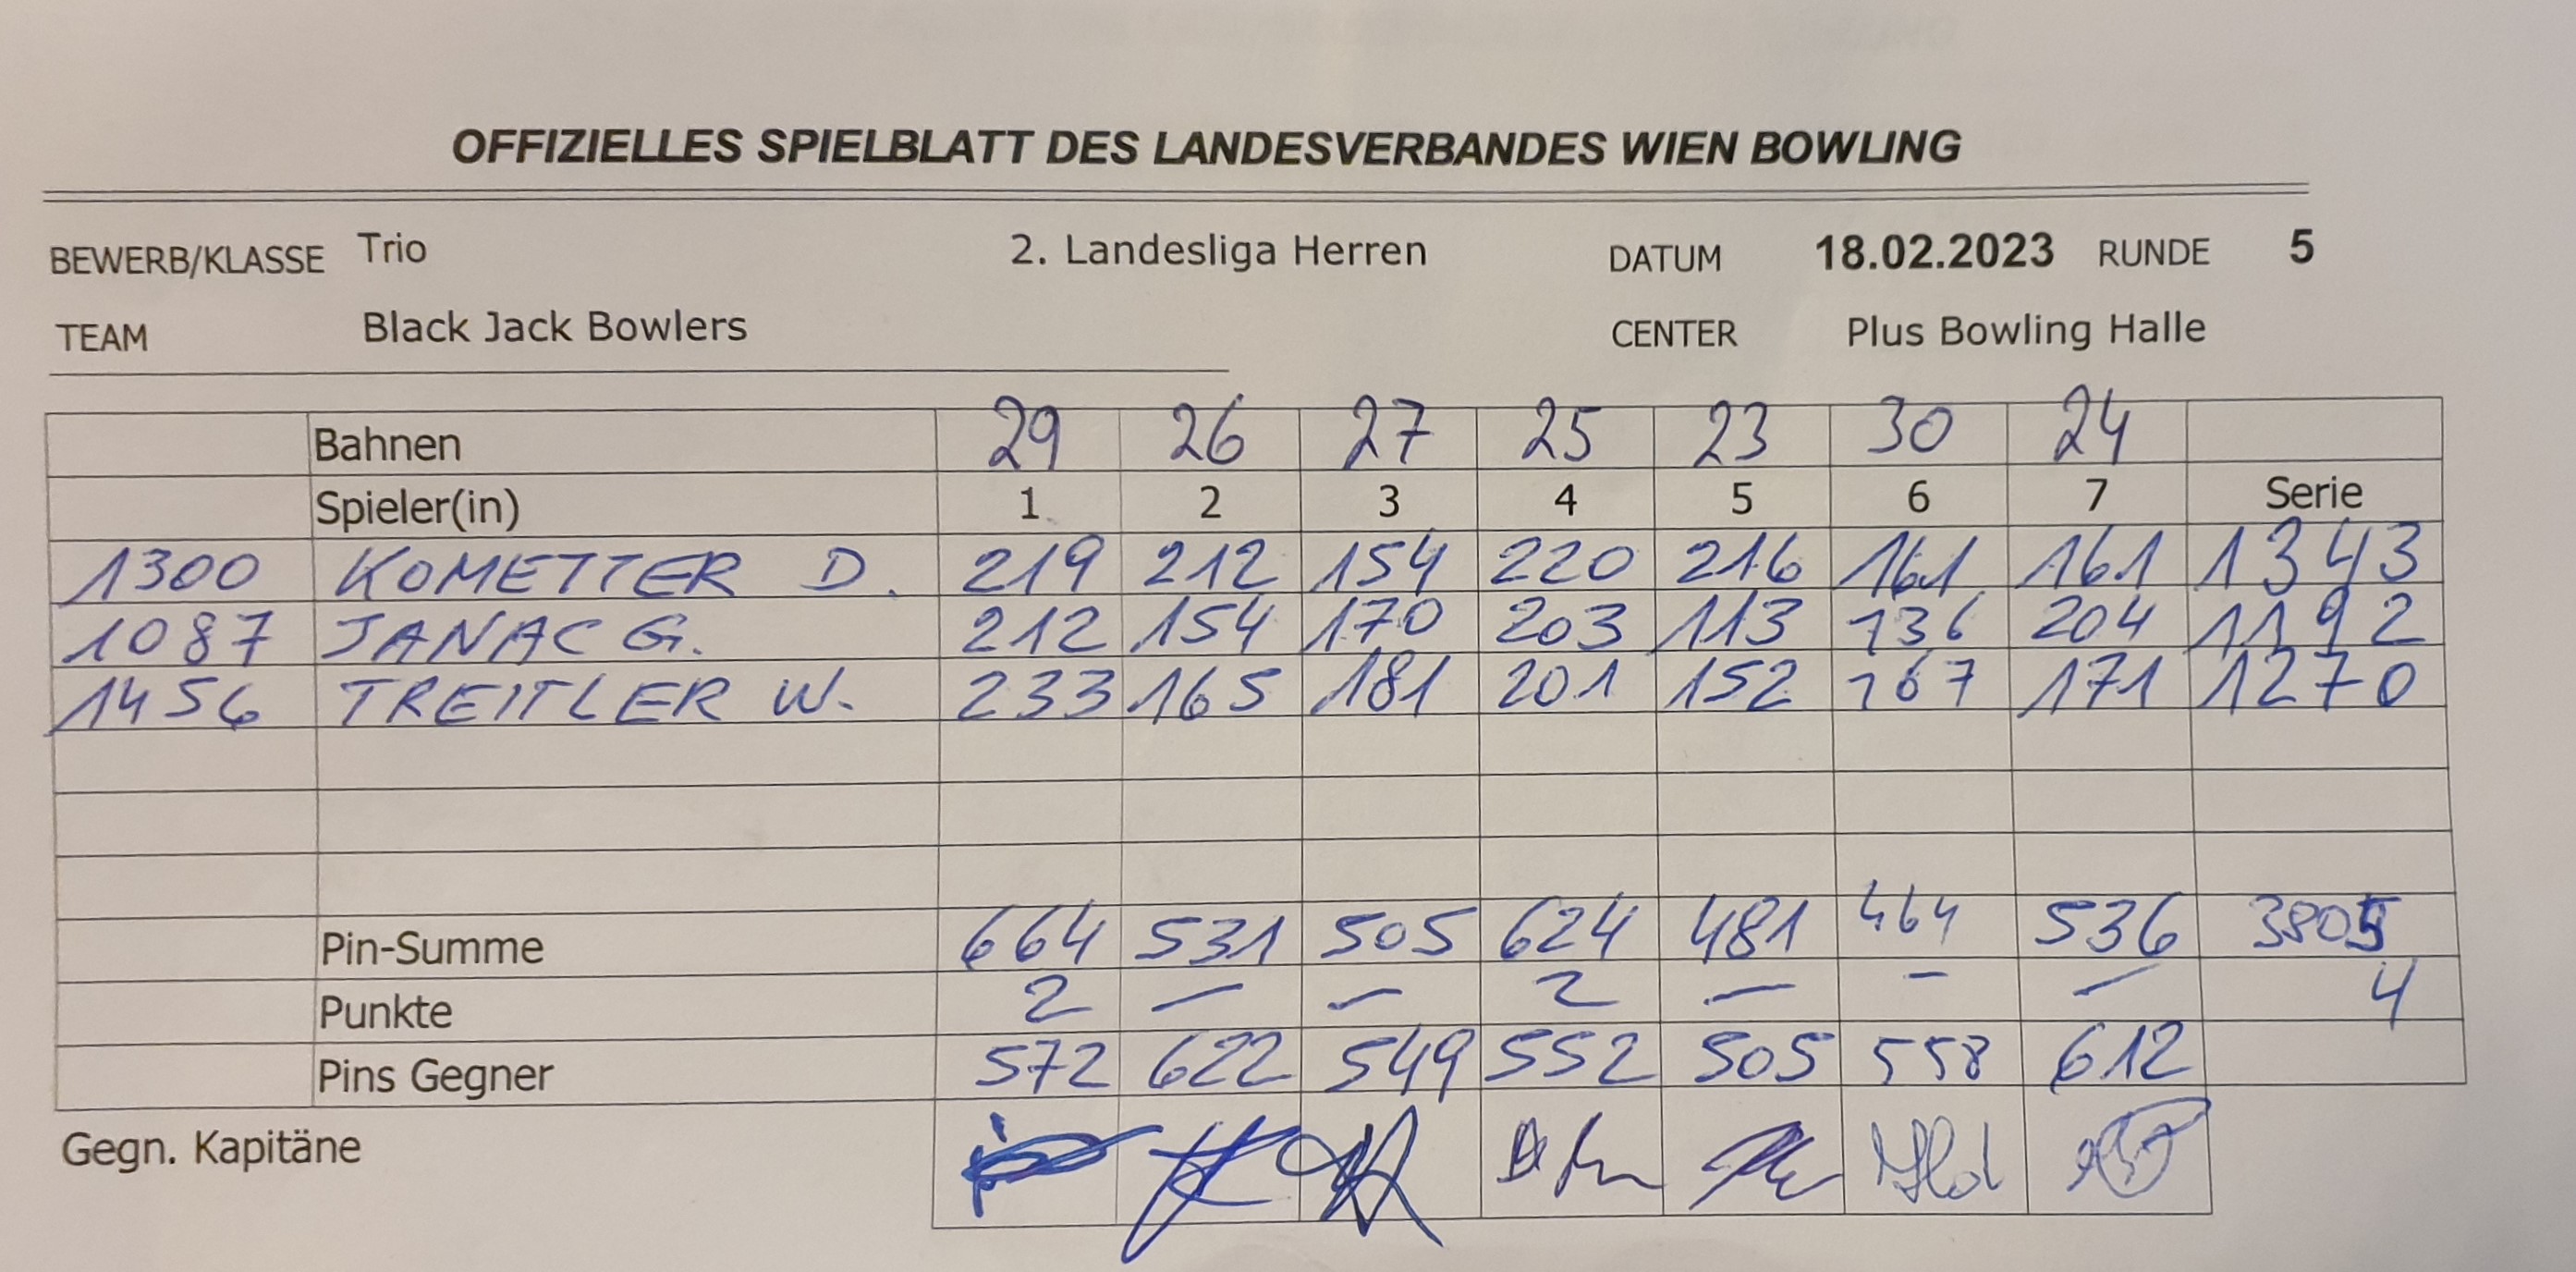 OFFIZIELLES SPIELBLATT DES LANDESVERBANDES WIEN BOWLING
BEWERB/KLASSE Trio 2. Landesliga Herren DATUM 18.02.2023 RUNDE 5
TEAM Black Jack Bowlers CENTER Plus Bowling Halle
Bahnen 29 26 27 25 23 30 24
Spieler(in) 1 2 3 4 5 6 7 Serie
1300 KOMETTER D. 219 212 154 220 216 161 161 1343
1087 JANAC G. 212 154 170 203 113 136 204 1192
1456 TREITLER W. 233 165 181 201 152 167 171 1270
Pin-Summe 664 531 505 624 481 464 536 3805
Punkte 2 – – 2 – – – 4
Pins Gegner 572 622 549 552 505 558 612
Gegn. Kapitäne